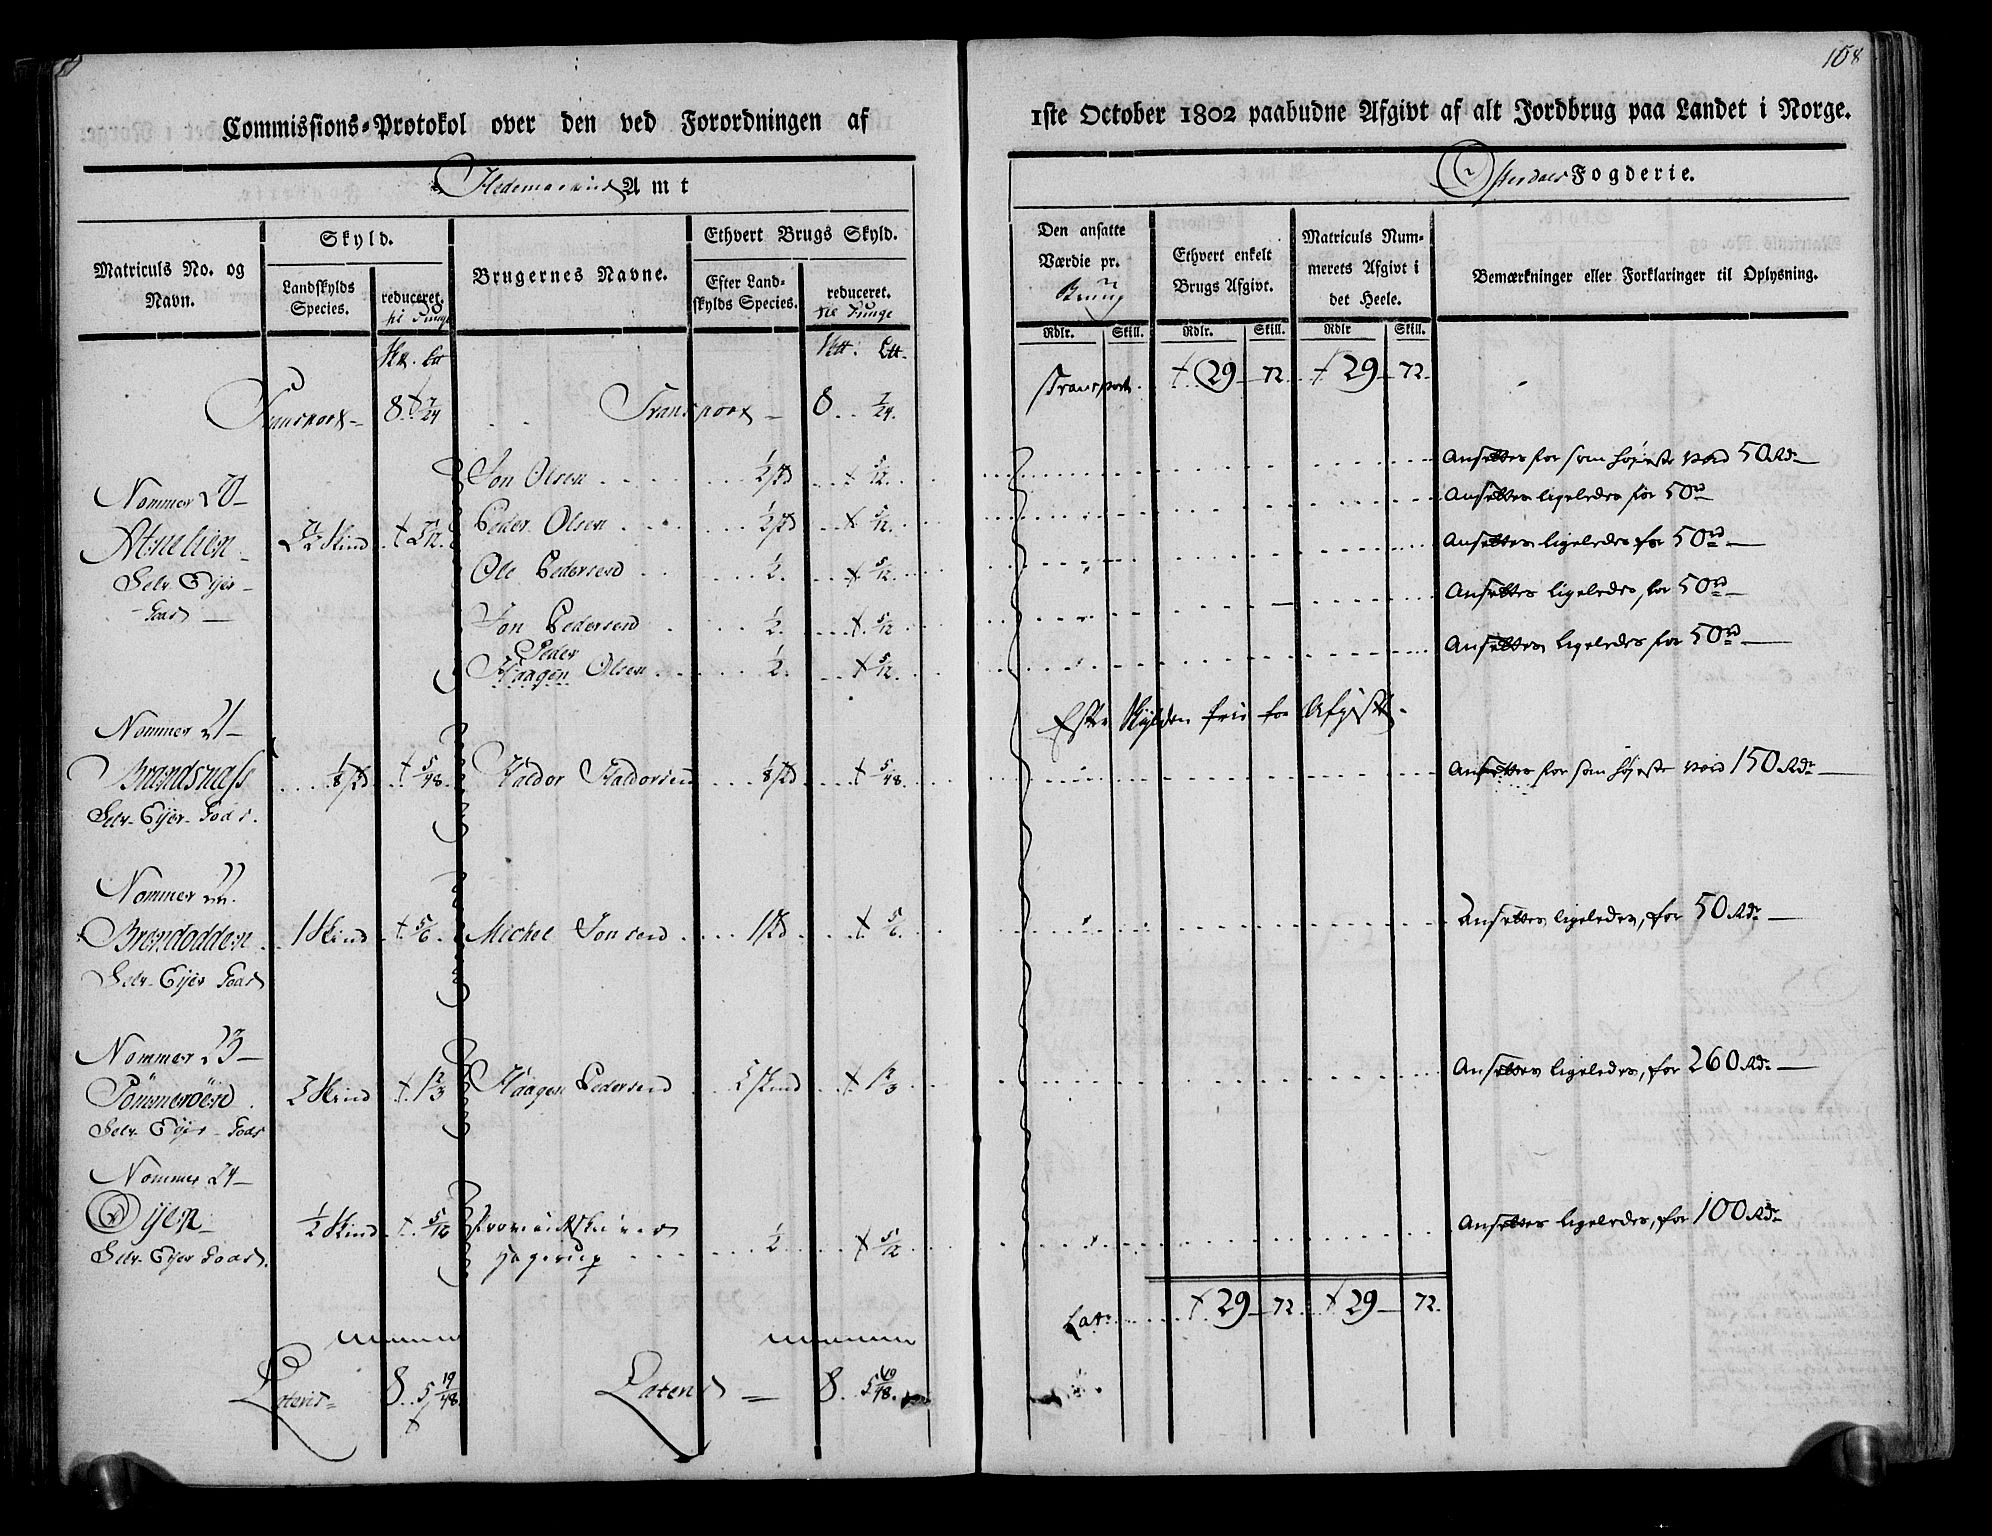 108
Commissions-Protokol over den ved Forordningen af
1ste October 1802 paabudne Afgivt af alt Jordbrug paa Landet i Norge.
Hedemarkens Amt
Østerdals Fogderie.
Matriculs No. og Navn.
Skyld.
Landskylds Species.
reduceret.
til Tunge
Brugernes Navne.
Ethvert Brugs Skyld.
Efter Land-
skylds Species.
reduceret.
til Tunge
Den ansatte
Værdie pr.
Brug
Ethvert enkelt
Brugs Afgivt.
Matriculs Num-
merets Afgivt i
det Heele.
Bemærkninger eller Forklaringer til Oplysning.
Rdlr. Skill. Rdlr. Skill. Rdlr Skill.
Transport 8 7/24 Transport 8 7/24
Transport 29 72 29 72
Nommer 20
Atnelien
Selv Eyer
Gods
2 1/2 Skind 2 1/12
Jon Olsen 1/2 5/12 Ansættes for som høyeste værd 50 Rdr
Peder Olsen 1/2 5/12 Ansættes ligeledes for 50 rd
Ole Pedersend 1/2 5/12 Ansættes ligeledes for 50 rd
Jon Pedersend 1/2 5/12 Ansættes ligeledes, for 50 rd
Peder
Haagen Olsen 1/2 5/12 Ansættes ligeledes for 50 rd
Efter Skylden frie for Afgivt.
Nommer 21
Brandsnæss
Selv-Eyer-Gods.
1/8 5/48 Haldor Haldorsend 1/8 5/48 Ansættes for som høyeste værd 150 Rdr
Nommer 22.
Brændodden
Selv-Eyer Gods
1 Skind 5/6 Michel Jonsend 5/6 Ansættes ligeledes, for 50 Rdr
Nommer 23
Tömmeröend
Selv-Eyer-Gods
2 Skind 1 2/3 Haagen Pedersend 2 Skind 1 2/3 Ansættes ligeledes, for 260 Rdr
Nommer 24
Øyen
Selv Eyer Gods.
1/2 Skind 5/12 Proviantskriver
Hagerup 1/2 5/12 Ansættes ligeledes, for 100 Rdr
Lat. 29 72 29 72
Lateris 8 5 19/48 Lateris 8 5 19/48